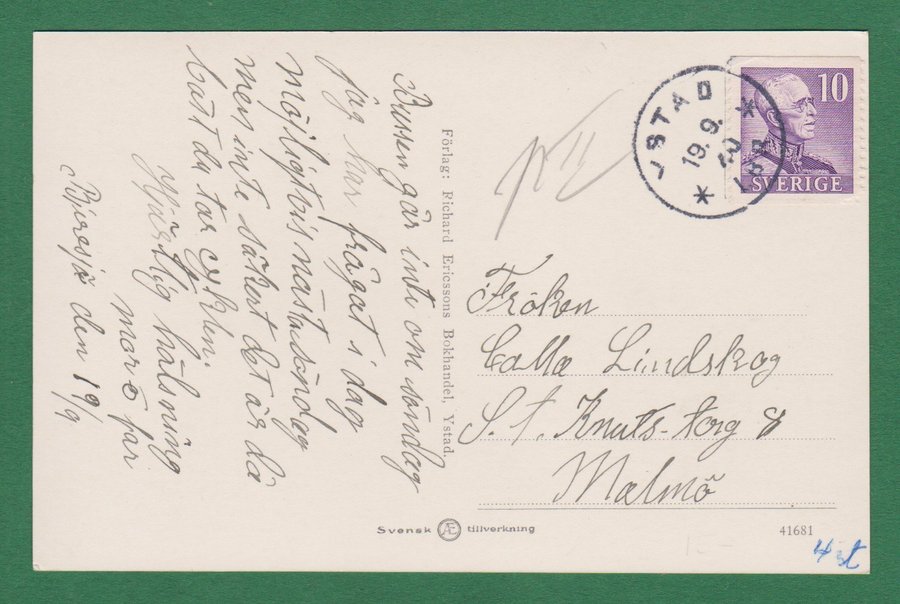 Bussen går inte om söndag
jag har frågat i dag
möjligtvis nästa söndag
men inte säkert det är då
bäst du tar cykeln.
Hjärtlig hälsning
mor o far
Bjeresjö den 19/9
Förlag: Richard Ericssons Bokhandel, Ystad.
YSTAD
19.9.
10
SVERIGE
Fröken
Lindskog
S:t. Knuts-torg 8
Malmö
Svensk AE tillverkning
41681
4 st